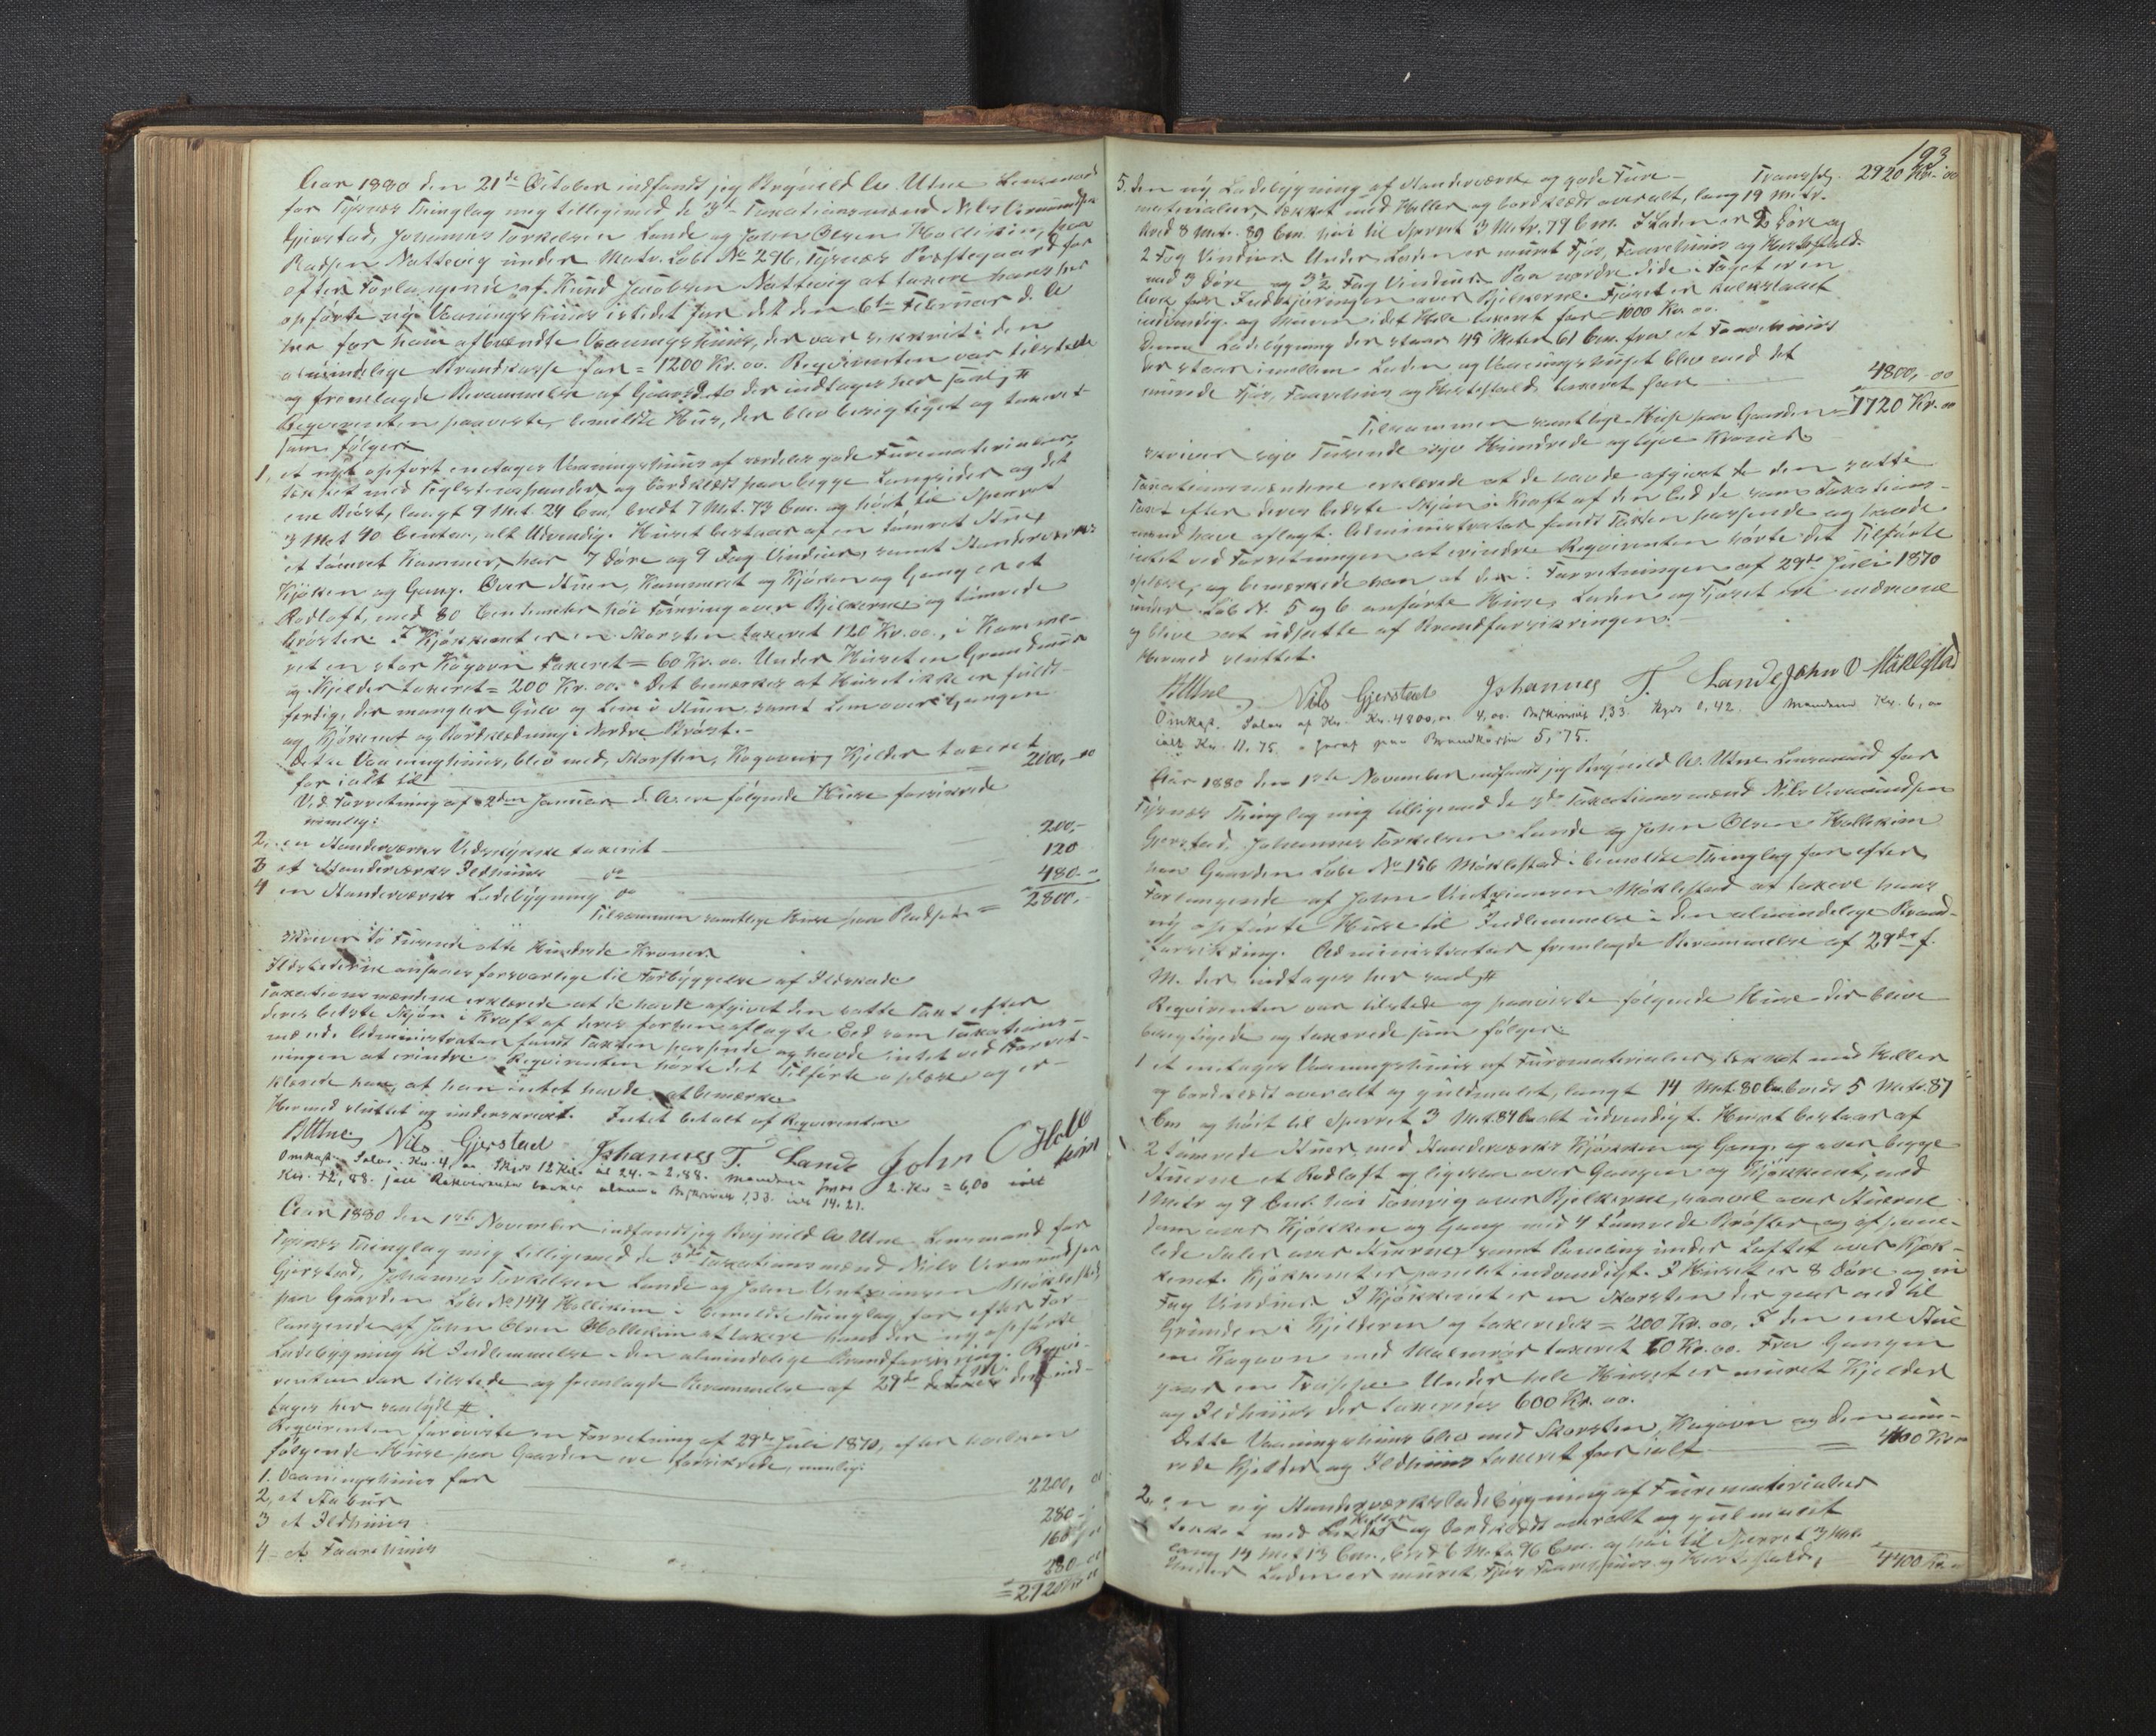 Aar 1880 den 21de October indfandt jeg Brynild A. Utne Lensmand
for Tysnæs Thinglag mig tilligemed de 3de Taxationsmænd Nils Vermundsen
Gjerstad, Johannes Torkelsen Lande og John Olsen Hallekim, paa
Pladsen Nattevig under Matr. Løbe No 296, Tysnæs Præstegaard for
efter Forlangende af Knud Jacobsen Nattevig at taxere hans her
opførte ny Vaaningshuus istedet for det den 6te Februar d. A
her for ham afbrændte Vaaningshuus, der var assureret i den
almindelige Brandkasse for = 1200 Kr. 00. Reqvirenten var tilstede
og fremlagde Berammelse af Gaarsdato der indtages her saal. #
Reqvirenten paaviste bemeldte Huus, der blev besigtiget og taxeret
som følger:
1, et nyt opført enetages Vaaningshuus af særdeles gode Furematerialier,
tækket med Teglsteenspander og bordklædt paa begge Langsider og det
ene Brøst, langt 9 Met. 24 Cm, bredt 7 Met. 73 Cm. og høit til Sperret
3 Met 40 Centm., alt Udvendig. Huset bestaar af en tømret Stue,
et tømret Kammer, har 7 Døre og 9 Fag Vinduer, samt Standerværks
Kjøken og Gang. Over Stuen, Kammeret og Kjøken og Gang er et
Rodloft, med 80 Centimeter høi Tømring over Bjelkerne og tømrede
Brøster. I Kjøkkenet er en Skorsten taxeret 120 Kr. 00., i Kamme-
ret en stor Kogovn taxeret = 60 Kr. 00. Under Huset en Grundmuur
og Kjelder taxeret = 200 Kr. 00. Det bemærkes at Huset ikke er fuldt
færdig, der mangler Gulv og Lem i Stuen, samt Lem over Gangen
og Kjøkenet og Bordklædning i Nordre Brøst. -
Dette Vaaningshuus, blev med, Skorsten, Kogovn, Kjelder taxeret
for ialt til 2000,-00
Ved Forretning af 2den Januar d. A. ere følgende Huse forsikrede
nemlig:
2, en Standerværks Vedskykke taxeret 200,-
3 et Standerværks Ildhuus do 120
4 en Standerværks Ladebygning do 480.-
Tilsammen samtlige Huse paa Pladsen = 2800,-
skriver to Tusende otte Hundrede Kroner.
Ildstederne ansaaes forsvarlige til Forbyggelse af Ildskade
Taxationsmændene erklærede at de havde afgivet den satte Taxt efter
deres bedste Skjøn i Kraft af deres forhen aflagte Eed som Taxations-
mænd. Administrator fandt Taxten passende og havde intet ved Forret-
ningen at erindre. Reqvirenten hørte det Tilførte oplæse og er-
klærede han, at han intet havde at bemærke
Hermed sluttet og underskrevet. Intet betalt af Reqvirenten
BAUtne, Nils Gjerstad Johannes T. Lande John O Halle
kim
Omkost. Salær Kr. 4, 00 Skyds 12 Kil. ad 24. = 2.88. Mændene hver 2. Kr = 6,00 ialt
Kr. 12,88. 1,33. ialt 14.21.
Aar 1880 den 1ste November indfandt jeg Brynild A. Utne Lensmand for
Tysnæs Thinglag mig tilligemed de 3de Taxationsmænd Niels Vermundsen
Gjerstad, Johannes Torkelsen Lande og John Vintzensen Møklestad
paa Gaarden Løbe No 144 Hallekim i bemeldte Thinglag for efter For-
langende af John Olsen Hallekim at taxere hans der ny opførte
Ladebygning til Indlemmelse i den almindelige Brandforsikring. Reqvi-
renten var tilstede og fremlagde Berammelse af 29de der ind-
tages her saalydt #
Reqvirenten foreviste en Forretning af 29de Juli 1870, efter hvilken
følgende Huse paa Gaarden ere forsikrede, nemlig:
1. Vaaningshuus for 2200,
2, et Stabur 280-
3 et Ildhuus 160,
4- et Faarehuus 280-00
= 2920 Kr 00
193.
Transp. 2920 Kr. 00
5. den ny Ladebygning af Standerværk og gode Fure-
materialier, tækket med Heller og bordklædt overalt, lang 19 Metr.
bred 8 Metr. 89 Cm. høi til Sperret 3 Metr. 79 Cm. I Laden er 2 Døre og
2 Fag Vinduer. Under Laden er muret Fjøs, Faarehuus og Hestestald
med 3 Døre og 3½ Fag Vinduer. Paa nordre Side i Taget er en
for Indkjøringen over Bjelkerne. Fjøset er kalkslaaet
indvendig. og Muren i det Hele taxeret for = 1000 Kr. 00.
Denne Ladebygning der staar 45 Meter 61 Cm. fra et Faarehuus
der staar imellem Laden og Vaaningshuset blev med det
murede Fjøs, Faarehuus og Hestestald taxeret for 4800,-00
Tilsammen samtlige Huse paa Gaarden = 7720 Kr. 00
skriver syv Tusende syv Hundrede og tyve Kroner
Taxationsmændene erklærede at de havde afgivet den satte
Taxt efter deres bedste Skjøn i Kraft af den Eed de som Taxations-
mænd have aflagt. Administrator fandt Taxten passende og havde
intet ved Forretningen at erindre. Reqvirenten hørte det Tilførte
oplæse, og bemærkede han at de i Forretningen af 29de Juli 1870
under Løb N. 5 og 6 anførte Huse, Laden og Fjøset ere nedrevne
og blive at udslette af Brandforsikringen.
Hermed sluttet.
BAUtne, Nils Gjerstad Johannes T. Lande John V Møklestad
Omkost. Salær af Kr. 4800,00 4,00. Beskrivels 1,33. Skyds 0,42. Mændene Kr. 6,00
ialt Kr. 11.75. heraf paa Brandkassen 5,75.
Aar 1880 den 1ste November indfandt jeg Brynild A. Utne Lensmand for
Tysnæs Thinglag mig tilligemed de 3de Taxationsmænd Nils Vermundsen
Gjerstad, Johannes Torkelsen Lande og John Olsen Hallekim
paa Gaarden Løbe No 156 Møklestad i bemeldte Thinglag for efter
Forlangende af John Vintzensen Møklestad at taxere hans
ny opførte Huse til Indlemmelse i den almindelige Brand-
forsikring. Administrator fremlagde Berammelse af 29de f.
M. der indtages her saal. #
Reqvirenten var tilstede og paaviste følgende Huse der bleve
besigtigede og taxerede som følger:
1 et enetages Vaaningshuus af Furematerialier, tækket med Heller
og bordklædt overalt og guulmalet, langt 14 Met 80 Cm. bredt 5 Metr. 87
Cm og høit til Sperret 3 Met. 84 Cm alt udvendigt. Huset bestaar af
2 tømrede Stuer, med Standerværks Kjøkken og Gang, og over begge
Stuerne et Rodloft og ligesaa over Gangen og Kjøkkenet, med
1 Metr og 9 Cent. høi Tømring over Bjelkerne, saavel over Stuerne
som over Kjøkken og Gang med 4 tømrede Brøster og afpane-
lede Sale over Stuerne, samt Paneling under Loftet over Kjøk-
kenet. Kjøkkenet er panelet indvendigt. I Huset er 8 Døre og
Fag Vinduer. I Kjøkkenet er en Skorsten der gaar ned til
Grunden i Kjelderen og taxeredes = 200 Kr. 00. I den ene Stue
en Kogovn med taxeret 60 Kr. 00. Fra Gangen
gaar en Trappe. Under hele Huset er muret Kjelder
og Ildhuus der taxeredes 600 Kr. 00.
Dette Vaaningshuus blev med Skorsten, Kogovn og den mu-
rede Kjelder og Ildhuus taxeret for ialt = 4400 Kr 00
2. en ny Standerværksladebygning af Furematerialier
tækket med Heller og Bordklædt overalt og gulmalet
lang 14 Met 13 Cm., bred 6 Metr. 96 Cm. og høi til Sperret 3 Met.
Under Laden er muret Fjøs, Faarehuus og Hestestald, 4400 Kr.